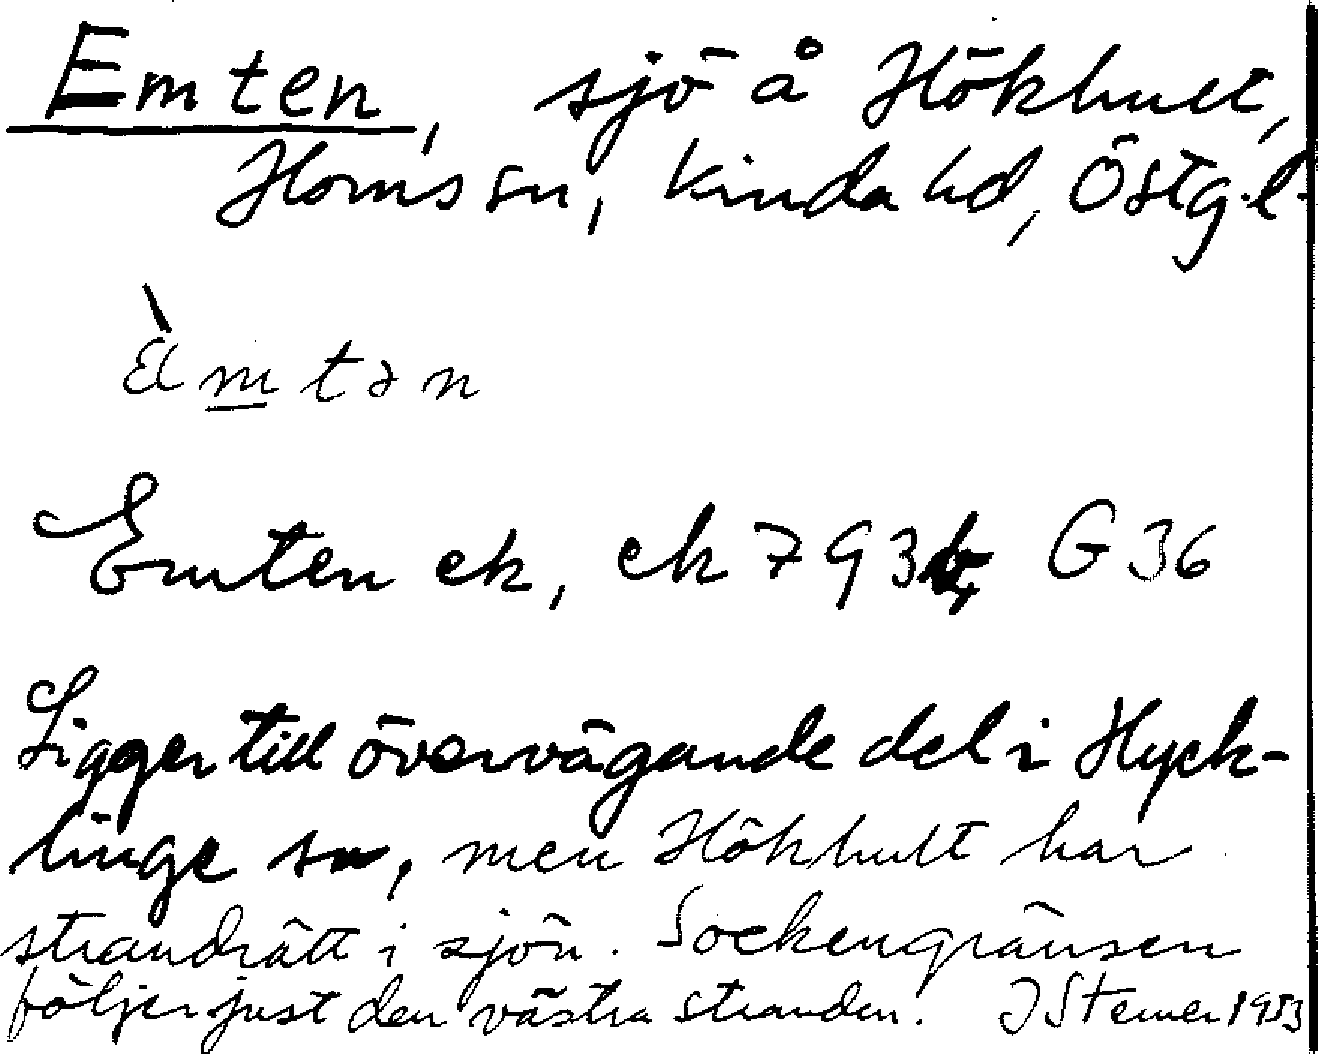 Emten, sjö å Hökhult,
Horns sn, Kinda hd, Östg.l.
Ämtən
Emten ek, ek 793 G 36
Ligger till övervägande del i Hyck-
linge sn, men Hökhult har
strandrätt i sjön. Sockengränsen
följer just den västra stranden. J Sterner 1953